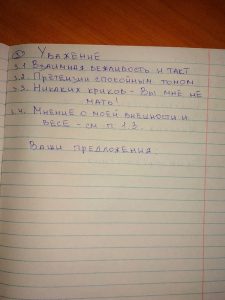 3) Уважение
3.1 Взаимная вежливость и такт
3.2. Претензии спокойным тоном
3.3. Никаких криков - Вы мне не
мать!
3.4. Мнение о моей внешности и
весе - см. п. 1.3.
Ваши предложения: